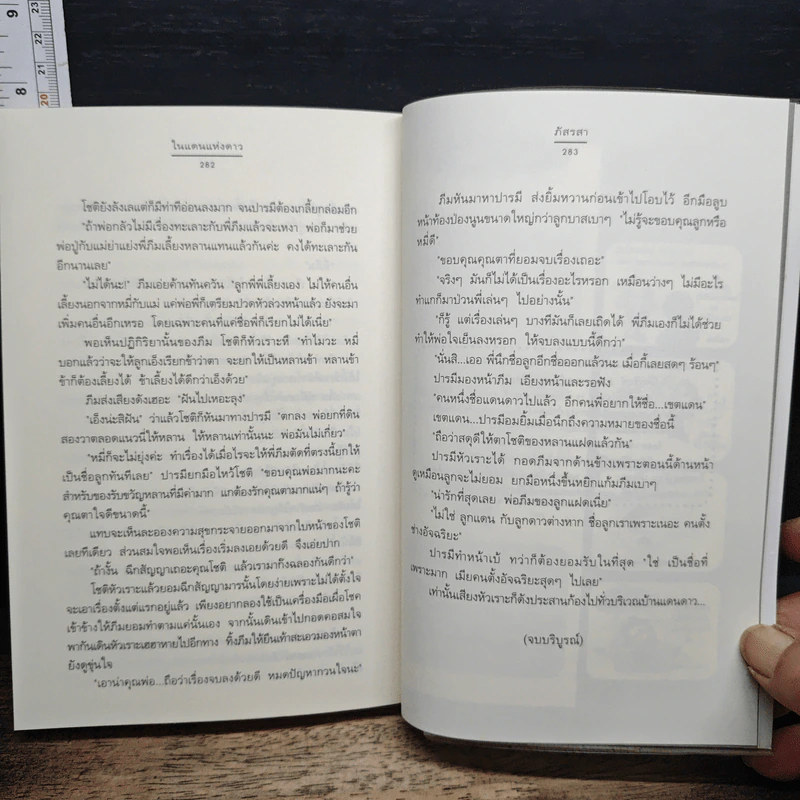 9
8
23
22
21
20
ในแดนแห่งดาว
282
โชติยังลังเลแต่ก็มีท่าทีอ่อนลงมาก จนปารมีต้องเกลี้ยกล่อมอีก
"ถ้าพ่อกลัวไม่มีเรื่องทะเลาะกับพี่ภีมแล้วจะเหงา พ่อก็มาช่วย
พ่อปู่กับแม่ย่าแย่งพี่ภีมเลี้ยงหลานแทนแล้วกันค่ะ คงได้ทะเลาะกัน
อีกนานเลย"
"ไม่ได้นะ!" ภีมเอ่ยค้านทันควัน "ลูกพี่พี่เลี้ยงเอง ไม่ให้คนอื่น
เลี้ยงนอกจากหมี่กับแม่ แค่พ่อพี่ก็เตรียมปวดหัวล่วงหน้าแล้ว ยังจะมา
เพิ่มคนอื่นอีกเหรอ โดยเฉพาะคนที่แค่ชื่อพี่ก็เรียกไม่ได้เนี่ย"
พอเห็นปฏิกิริยานั้นของภีม โชติก็หัวเราะหึ "ทำไมวะ หมี่
บอกแล้วว่าจะให้ลูกเอ็งเรียกข้าว่าตา จะยกให้เป็นหลานข้า หลานข้า
ข้าก็ต้องเลี้ยงได้ ข้าเลี้ยงได้ดีกว่าเอ็งด้วย"
ภีมส่งเสียงดังเฮอะ "ฝันไปเหอะลุง"
"เอ็งน่ะสิฝัน" ว่าแล้วโชติก็หันมาทางปารมี "ตกลง พ่อยกที่ดิน
สองวาตลอดแนวนี่ให้หลาน ให้หลานเท่านั้นนะ พ่อมันไม่เกี่ยว"
"หมี่ก็จะไม่ยุ่งค่ะ ทำเรื่องได้เมื่อไรจะให้พี่ภีมตัดที่ตรงนี้ยกให้
เป็นชื่อลูกทันทีเลย" ปารมียกมือไหว้โชติ "ขอบคุณพ่อมากนะคะ
สำหรับของรับขวัญหลานที่มีค่ามาก แกต้องรักคุณตามากแน่ๆ ถ้ารู้ว่า
คุณตาใจดีขนาดนี้"
แทบจะเห็นละอองความสุขกระจายออกมาจากใบหน้าของโชติ
เลยทีเดียว ส่วนสมใจพอเห็นเรื่องเริ่มลงเอยด้วยดี จึงเอ่ยปาก
"ถ้างั้น ฉีกสัญญาเถอะคุณโชติ แล้วเรามากิงฉลองกันดีกว่า"
โชติหัวเราะแล้วยอมฉีกสัญญามารนั้นโดยง่ายเพราะไม่ได้ตั้งใจ
จะเอาเรื่องตั้งแต่แรกอยู่แล้ว เพียงอยากลองใช้เป็นเครื่องมือเผื่อโชค
เข้าข้างให้ภีมยอมทำตามแค่นั้นเอง จากนั้นเดินเข้าไปกอดคอสมใจ
พากันเดินหัวเราะเฮฮาหายไปอีกทาง ทิ้งภีมให้ยืนเท้าสะเอวมองหน้าตา
ยังดูขุ่นใจ
"เอาน่าคุณพ่อ...ถือว่าเรื่องจบลงด้วยดี หมดปัญหากวนใจนะ"
ภัสรสา
283
ภีมหันมาหาปารมี ส่งยิ้มหวานก่อนเข้าไปโอบไว้ อีกมือลูบ
หน้าท้องป่องนูนขนาดใหญ่กว่าลูกบาสเบาๆ "ไม่รู้จะขอบคุณลูกหรือ
หมี่ดี"
"ขอบคุณคุณตาที่ยอมจบเรื่องเถอะ"
"จริงๆ มันก็ไม่ได้เป็นเรื่องอะไรหรอก เหมือนว่างๆ ไม่มีอะไร
ทำแกก็มาป่วนพี่เล่นๆ ไปอย่างนั้น"
"ก็รู้ แต่เรื่องเล่นๆ บางทีมันก็เลยเถิดได้ พี่ภีมเองก็ไม่ได้ช่วย
ทำให้พ่อใจเย็นลงหรอก ให้จบลงแบบนี้ดีกว่า"
"นั่นสิ...เออ พี่นึกชื่อลูกอีกชื่อออกแล้วนะ เมื่อกี้เลยสดๆ ร้อนๆ"
ปารมีมองหน้าภีม เอียงหน้าและรอฟัง
"คนหนึ่งชื่อแดนดาวไปแล้ว อีกคนพี่อยากให้ชื่อ...เขตแดน"
เขตแดน...ปารมีอมยิ้มเมื่อนึกถึงความหมายของชื่อนี้
"ถือว่าสดุดีให้ตาโชติของหลานแฝดแล้วกัน"
ปารมีหัวเราะได้ กอดภีมจากด้านข้างเพราะตอนนี้ด้านหน้า
ดูเหมือนลูกจะไม่ยอม ยกมือหนึ่งขึ้นหยิกแก้มภีมเบาๆ
"น่ารักที่สุดเลย พ่อภีมของลูกแฝดเนี่ย"
"ไม่ใช่ ลูกแดน กับลูกดาวต่างหาก ชื่อลูกเราเพราะเนอะ คนตั้ง
ช่างอัจฉริยะ"
ปารมีทำหน้าเบ้ ทว่าก็ต้องยอมรับในที่สุด "ใช่ เป็นชื่อที่
เพราะมาก เมียคนตั้งอัจฉริยะสุดๆ ไปเลย"
เท่านั้นเสียงหัวเราะก็ดังประสานก้องไปทั่วบริเวณบ้านแดนดาว...
(จบบริบูรณ์)